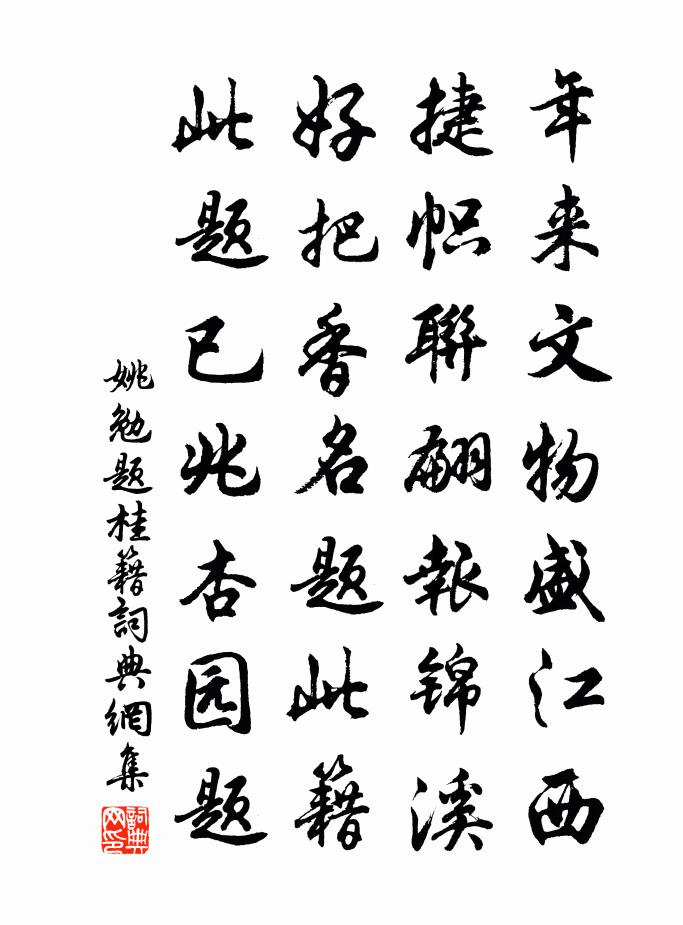 年来文物盛江西
捷帜聯翩報锦溪
好把香名题此籍
此题已兆杏园题
姚勉题桂籍詞典網集
詞典网印